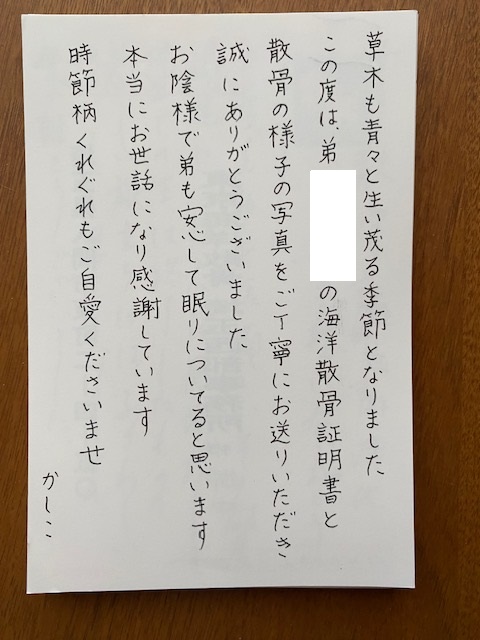 草木も青々と生い茂る季節となりました
この度は、弟
の海洋散骨証明書と
散骨の様子の写真をご丁寧にお送りいただき
誠にありがとうございました
お陰様で弟も安心して眠りについてると思います
本当にお世話になり感謝しています
時節柄くれぐれもご自愛くださいませ
かしこ